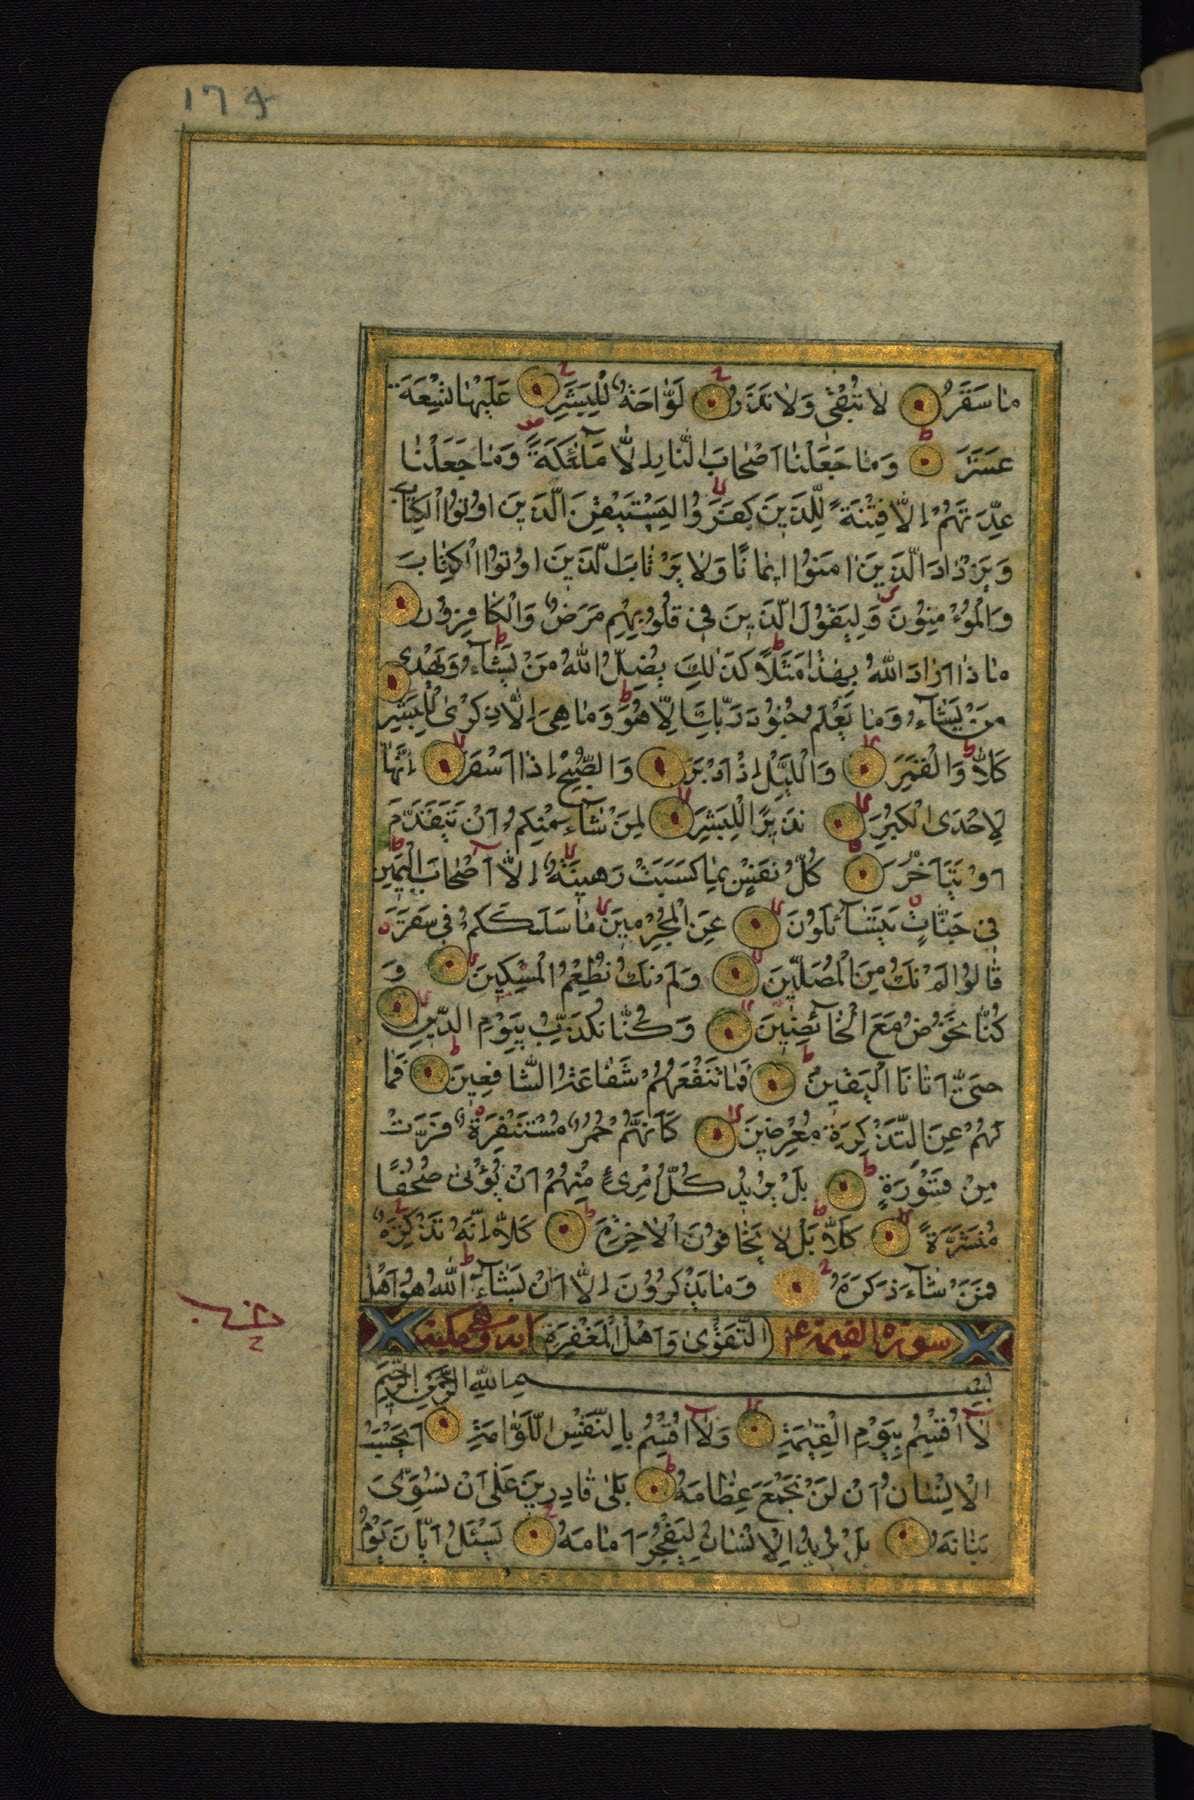 174
مَا سَقَرُ لَا تُبْقِی وَلَا تَذَرُ لَوَّاحَةٌ لِلْبَشَرِ عَلَیْهَا تِسْعَةَ
عَشَرَ وَمَا جَعَلْنَا اَصْحَابَ النَّارِ اِلَّا مَلٰٓئِكَةً وَمَا جَعَلْنَا
عِدَّتَهُمْ اِلَّا فِتْنَةً لِلَّذِینَ كَفَرُوا لِیَسْتَیْقِنَ الَّذِینَ اُوتُوا الْكِتَابَ
وَیَزْدَادَ الَّذِینَ اٰمَنُوا اِیمَانًا وَلَا یَرْتَابَ الَّذِینَ اُوتُوا الْكِتَابَ
وَالْمُؤْمِنُونَ وَلِیَقُولَ الَّذِینَ فِی قُلُوبِهِمْ مَرَضٌ وَالْكَافِرُونَ
مَاذَا اَرَادَ اللّٰهُ بِهٰذَا مَثَلًا كَذٰلِكَ یُضِلُّ اللّٰهُ مَنْ یَشَآءُ وَیَهْدِی
مَنْ یَشَآءُ وَمَا یَعْلَمُ جُنُودَ رَبِّكَ اِلَّا هُوَ وَمَا هِیَ اِلَّا ذِكْرٰی لِلْبَشَرِ
كَلَّا وَالْقَمَرِ وَاللَّیْلِ اِذْ اَدْبَرَ وَالصُّبْحِ اِذَا اَسْفَرَ اِنَّهَا
لَاِحْدَی الْكُبَرِ نَذِیرًا لِلْبَشَرِ لِمَنْ شَآءَ مِنْكُمْ اَنْ یَتَقَدَّمَ
اَوْ یَتَاَخَّرَ كُلُّ نَفْسٍ بِمَا كَسَبَتْ رَهِینَةٌ اِلَّا اَصْحَابَ الْیَمِینِ
فِی جَنَّاتٍ یَتَسَآئَلُونَ عَنِ الْمُجْرِمِینَ مَا سَلَكَكُمْ فِی سَقَرَ
قَالُوا لَمْ نَكُ مِنَ الْمُصَلِّینَ وَلَمْ نَكُ نُطْعِمُ الْمِسْكِینَ وَ
كُنَّا نَخُوضُ مَعَ الْخَآئِضِینَ وَكُنَّا نُكَذِّبُ بِیَوْمِ الدِّینِ
حَتّٰی اَتَانَا الْیَقِینُ فَمَا تَنْفَعُهُمْ شَفَاعَةُ الشَّافِعِینَ فَمَا
لَهُمْ عَنِ التَّذْكِرَةِ مُعْرِضِینَ كَاَنَّهُمْ حُمُرٌ مُسْتَنْفِرَةٌ فَرَّتْ
مِنْ قَسْوَرَةٍ بَلْ یُرِیدُ كُلُّ امْرِئٍ مِنْهُمْ اَنْ یُؤْتٰی صُحُفًا
مُنَشَّرَةً كَلَّا بَلْ لَا یَخَافُونَ الْاٰخِرَةَ كَلَّا اِنَّهُ تَذْكِرَةٌ
فَمَنْ شَآءَ ذَكَرَهُ وَمَا یَذْكُرُونَ اِلَّا اَنْ یَشَآءَ اللّٰهُ هُوَ اَهْلُ
سورة القیمة التَّقْوٰی وَاَهْلُ الْمَغْفِرَةِ مكیة
بِسْمِ اللّٰهِ الرَّحْمٰنِ الرَّحِیمِ
لَا اُقْسِمُ بِیَوْمِ الْقِیٰمَةِ وَلَا اُقْسِمُ بِالنَّفْسِ اللَّوَّامَةِ اَیَحْسَبُ
الْاِنْسَانُ اَنْ لَنْ نَجْمَعَ عِظَامَهُ بَلٰی قَادِرِینَ عَلٰی اَنْ نُسَوِّیَ
بَنَانَهُ بَلْ یُرِیدُ الْاِنْسَانُ لِیَفْجُرَ اَمَامَهُ یَسْئَلُ اَیَّانَ یَوْمُ